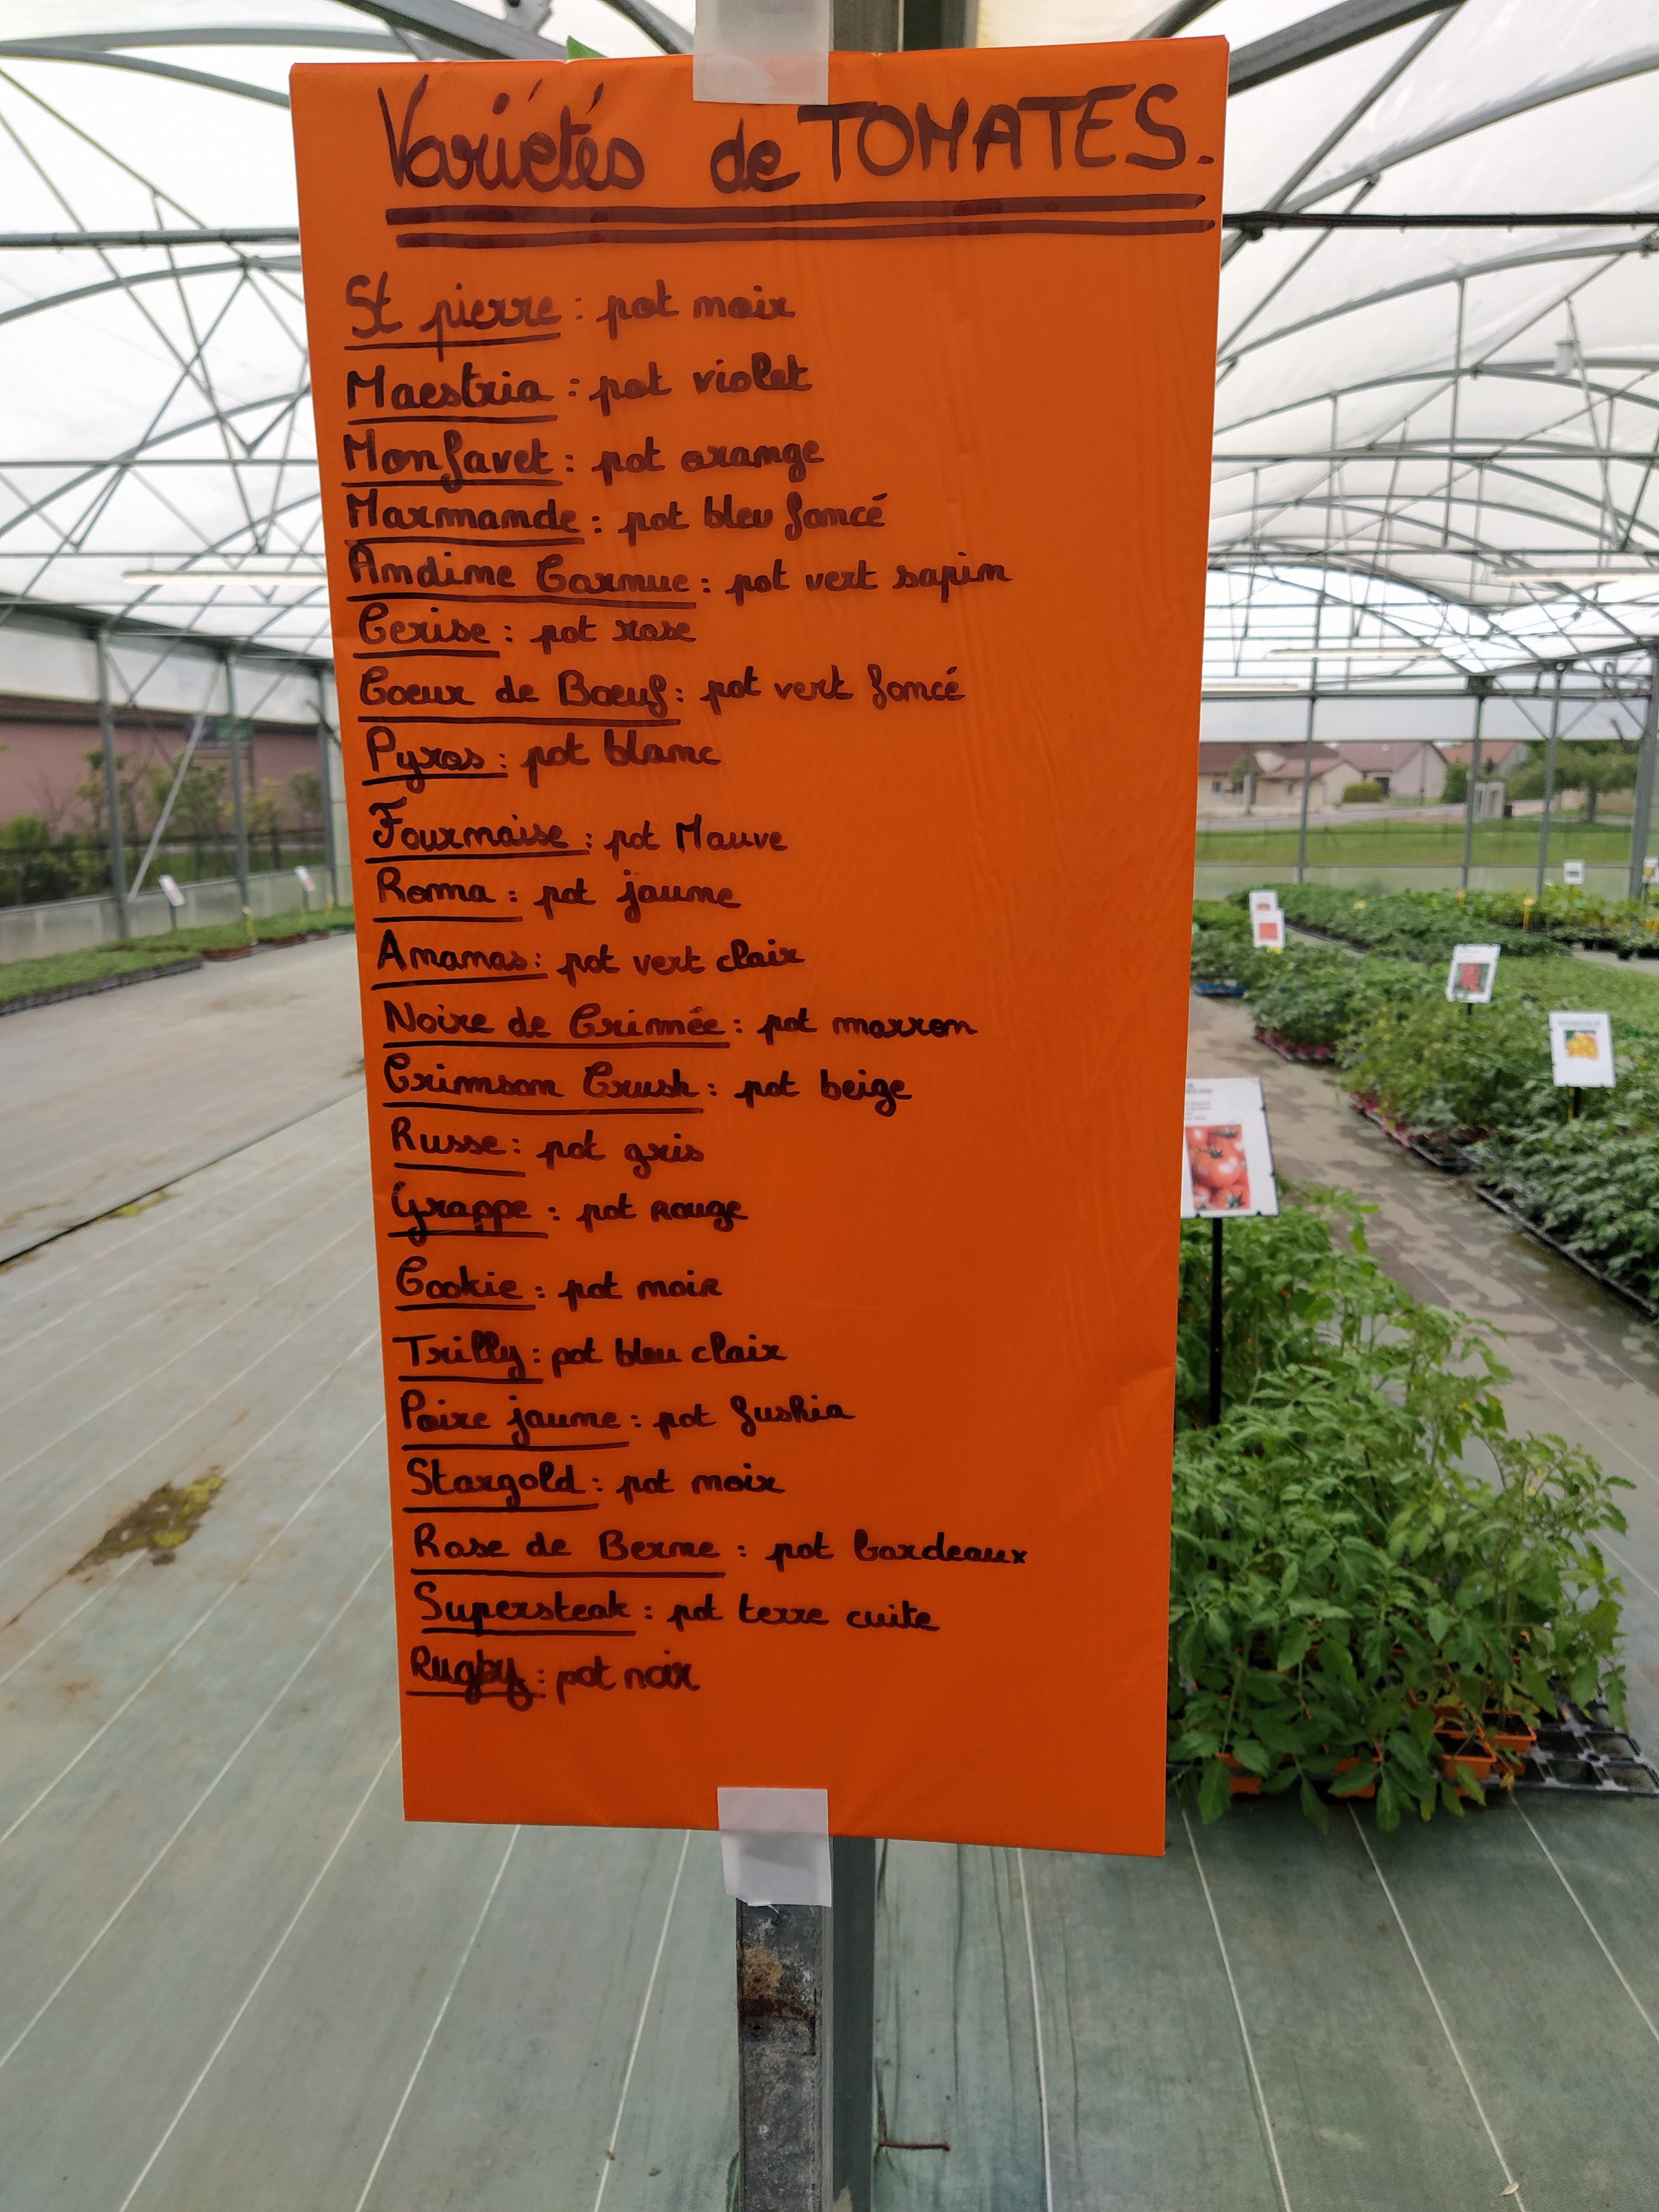 Variétés de TOMATES.
St pierre : pot noir
Maestria : pot violet
Monfavet : pot orange
Marmande : pot bleu foncé
Andine Cornue : pot vert sapin
Cerise : pot rose
Coeur de Boeuf : pot vert foncé
Pyros : pot blanc
Fournaise : pot Mauve
Roma : pot jaune
Ananas : pot vert clair
Noire de Crimée : pot marron
Crimson Crush : pot beige
Russe : pot gris
Grappe : pot rouge
Cookie : pot noir
Trilly : pot bleu clair
Poire jaune : pot fushia
Stargold : pot noir
Rose de Berne : pot bordeaux
Supersteak : pot terre cuite
Rugby : pot noir